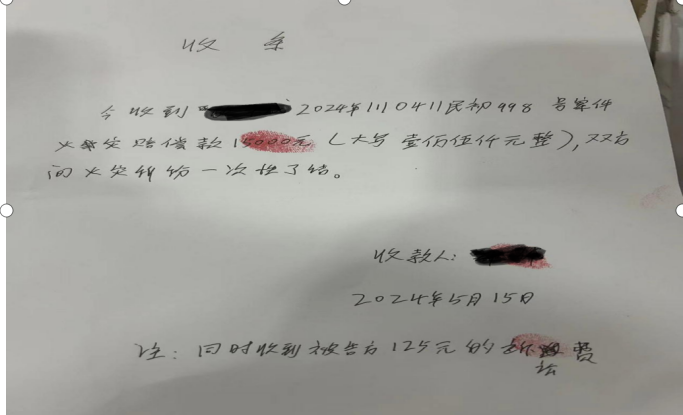 收 条
今收到 2024年川0411民初998号案件
火灾赔偿款15000元(大写壹佰伍仟元整),双方
间火灾纠纷一次性了结。
收款人:
2024年5月15日
注:同时收到被告方125元的诉讼费
法